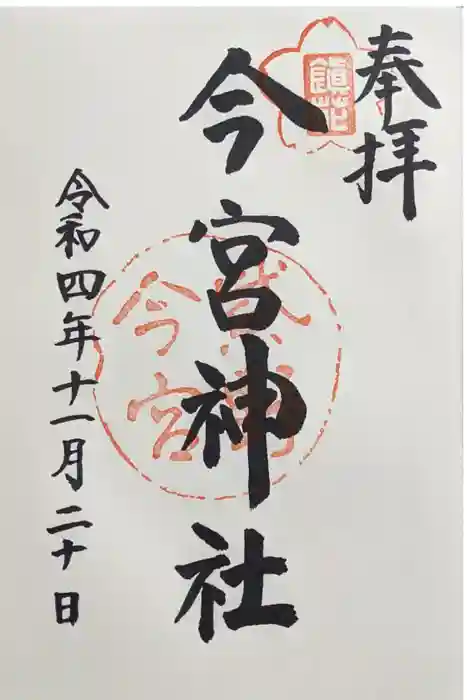 奉拝
鎮花
今宮神社
今宮
令和四年十一月二十日